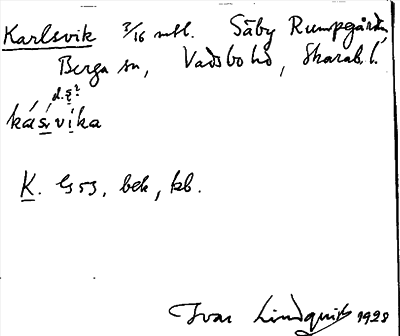 Karlsvik 3/16 mtl. Säby Rumpgården,
Berga sn, Vadsbo hd, Skarab. l.
d. ẹ?
káṣvika
K. Gs 53, bek, kb.
Ivar Lindquist 1928